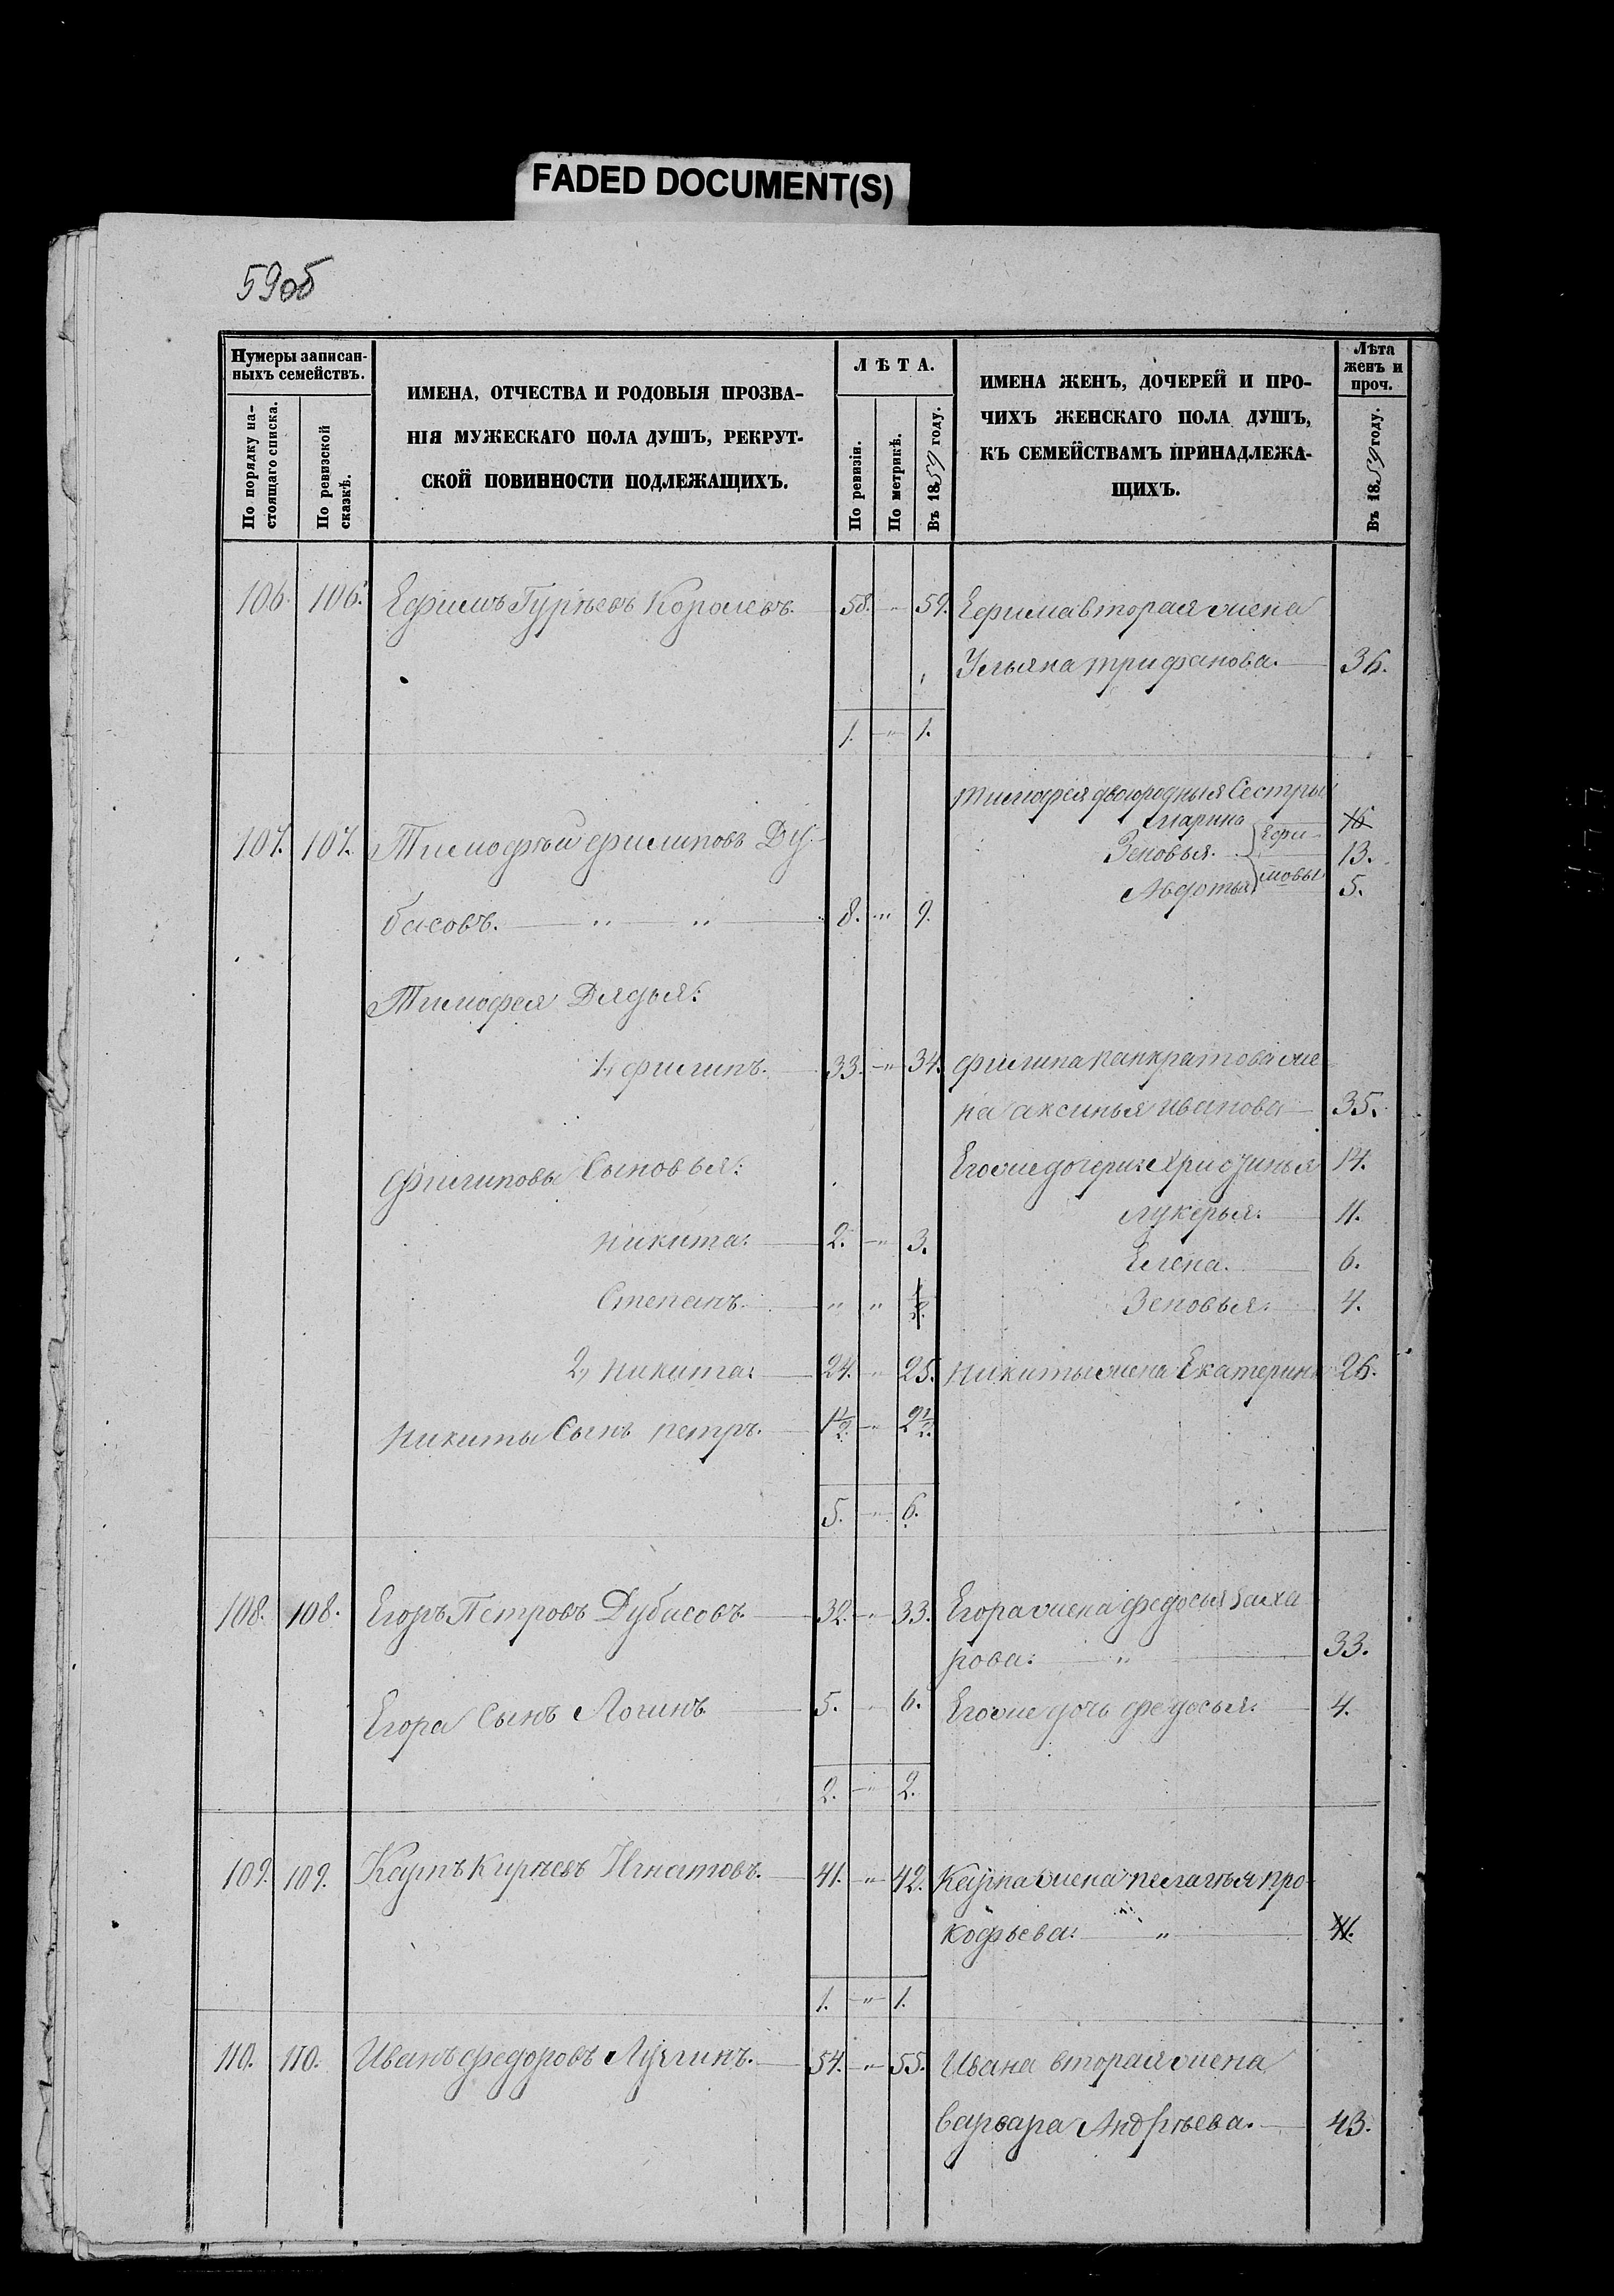 FADED DOCUMENT(S)
59об
Нумеры записан-
ныхъ семействъ.
По порядку на-
стоящаго списка.
По ревизской
сказкѣ.
ИМЕНА, ОТЧЕСТВА И РОДОВЫЯ ПРОЗВА-
НІЯ МУЖЕСКАГО ПОЛА ДУШЪ, РЕКРУТ-
СКОЙ ПОВИННОСТИ ПОДЛЕЖАЩИХЪ.
ЛѢТА.
По ревизіи.
По метрикѣ.
Въ 1859 году.
ИМЕНА ЖЕНЪ, ДОЧЕРЕЙ И ПРО-
ЧИХЪ ЖЕНСКАГО ПОЛА ДУШЪ,
КЪ СЕМЕЙСТВАМЪ ПРИНАДЛЕЖА-
ЩИХЪ.
Лѣта
женъ и
проч.
Въ 1859 году.
106. 106. Ефимъ Гурьевъ Королевъ. 58. " 59. Ефима вторая жена
Ульяна трифанова. 36.
1. " 1.
тимофея двоюродныя Сестры
Марина 16
107. 107. Тимофѣй филиповъ Ду- Зеновья. } Ефи- 13.
Авдотья } мовы 5.
басовъ. " " 8. " 9.
Тимофея Дядья:
1, филипъ. 33. " 34. филипа панкратова же-
на аксинья иванова 35.
Филиповы Сыновья: Егожедочери: Христинья 14.
лукерья. 11.
никита: 2. " 3.
Елена. 6.
Степанъ. " " 1/2. Зеновья. 4.
2, никита: 24. " 25. никиты жена Екатерина 26.
никиты Сынъ петръ. 1 1/2. " 2 1/2.
5. " 6.
108. 108. Егоръ Петровъ Дубасовъ. 32. " 33. Егора жена федосья Заха
рова: " 33.
Егора Сынъ Логинъ 5. " 6. Егоже дочь федосья. 4.
2. " 2.
109. 109. Карпъ кирѣевъ Игнатовъ. 41. " 42. Карпа жена пелагѣя про-
кофьева: " 41.
1. " 1.
110. 110. Иванъ федоровъ Лучгинъ. 54. " 55. Ивана вторая жена
варвара Андрѣева. 43.